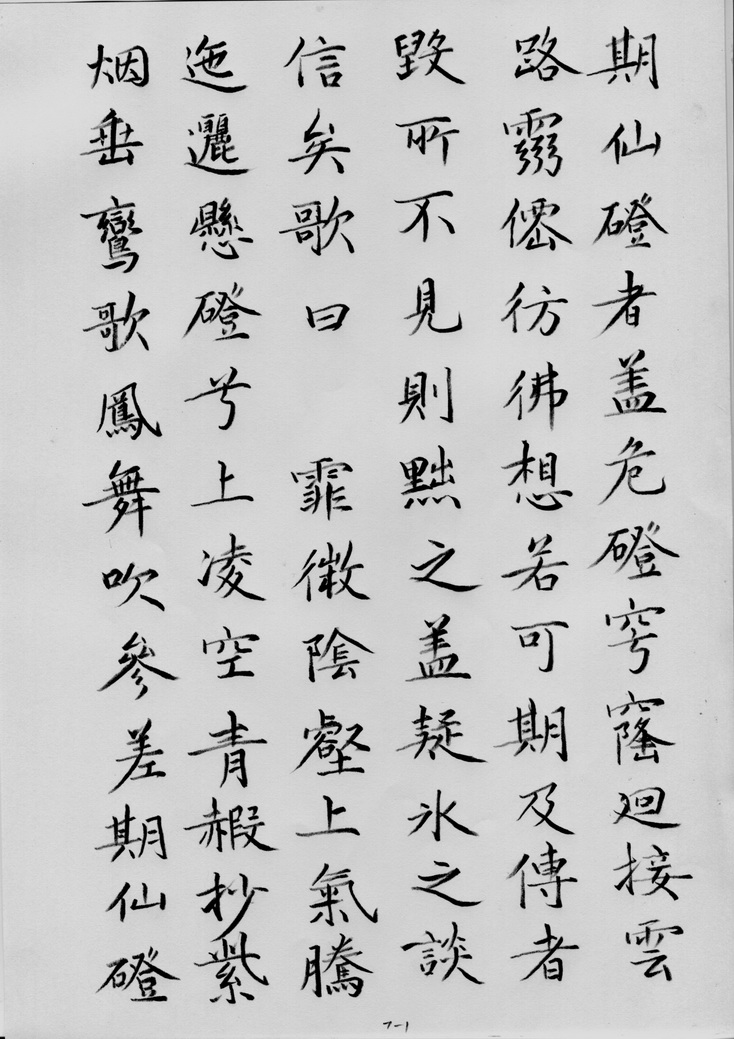 期仙磴者盖危磴穹窿迴接雲
路霛僊彷彿想若可期及傳者
毀所不見則黜之盖疑氷之談
信矣歌曰 霏微陰壑上氣騰
迤邐懸磴兮上凌空青赮抄紫
烟垂鸞歌鳳舞吹參差期仙磴
7-1